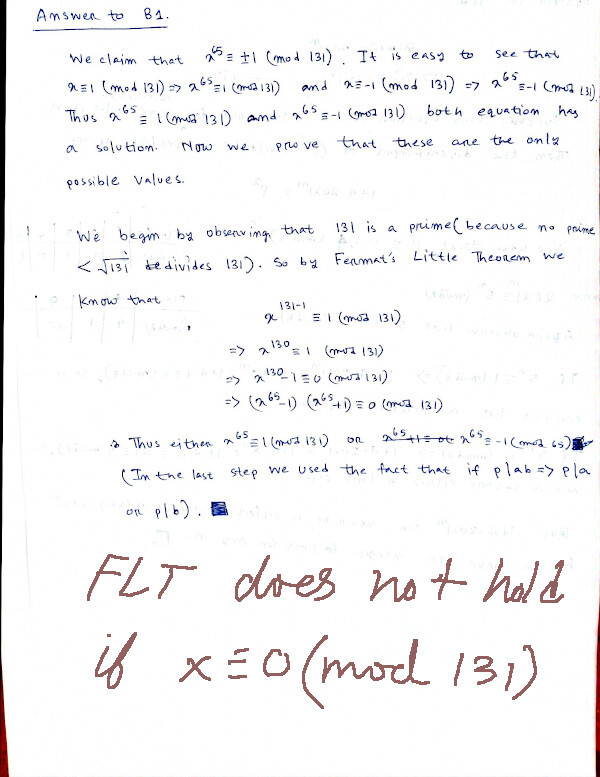 Answer to B1.
We claim that x^65 ≡ ±1 (mod 131). It is easy to see that
x≡1 (mod 131) => x^65≡1 (mod 131) and x≡-1 (mod 131) => x^65≡-1 (mod 131).
Thus x^65 ≡ 1 (mod 131) and x^65 ≡ -1 (mod 131) both equation has
a solution. Now we prove that these are the only
possible values.
We begin by observing that 131 is a prime (because no prime
< √131 divides 131). So by Fermat's Little Theorem we
know that,
x^131-1 ≡ 1 (mod 131)
=> x^130 ≡ 1 (mod 131)
=> x^130 - 1 ≡ 0 (mod 131)
=> (x^65-1) (x^65+1) ≡ 0 (mod 131)
Thus either x^65≡1 (mod 131) or x^65≡-1 (mod 65)
(In the last step we used the fact that if p|ab => p|a
or p|b).
FLT does not hold
if x≡0 (mod 131)